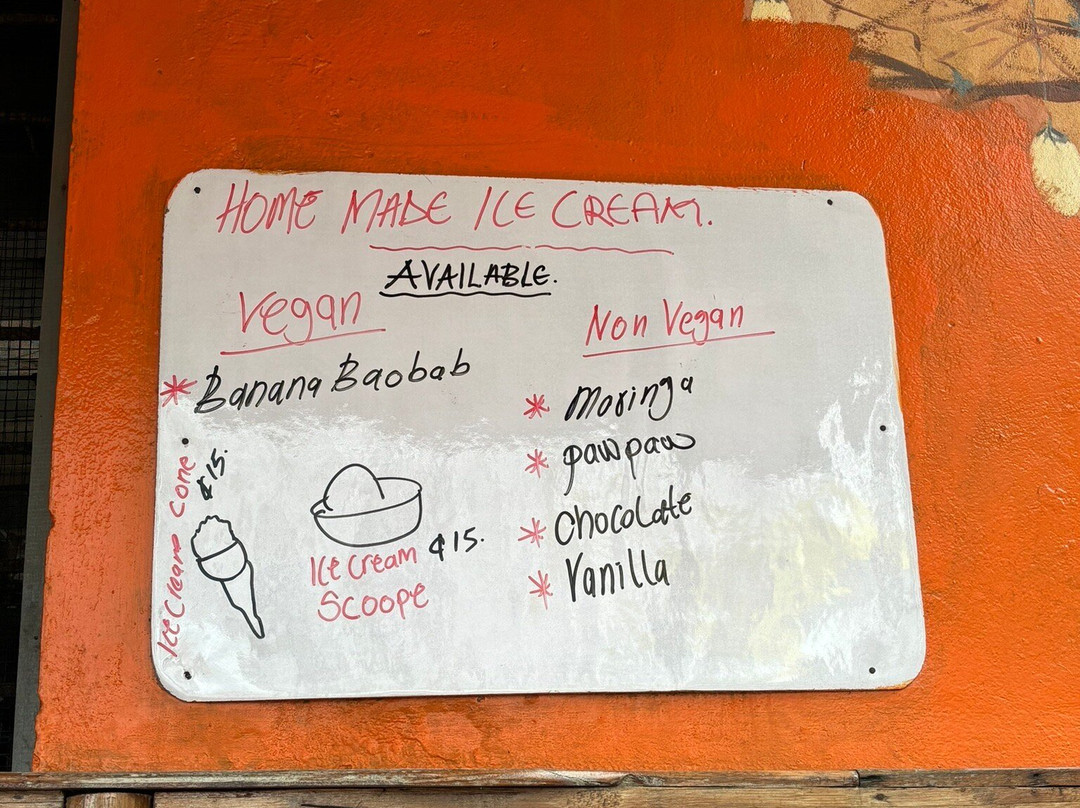 HOME MADE ICE CREAM.
AVAILABLE.
Vegan
* Banana Baobab
Ice Cream Cone ¢15.
Ice Cream ¢15.
Scoope
Non Vegan
* Moringa
* pawpaw
* Chocolate
* Vanilla